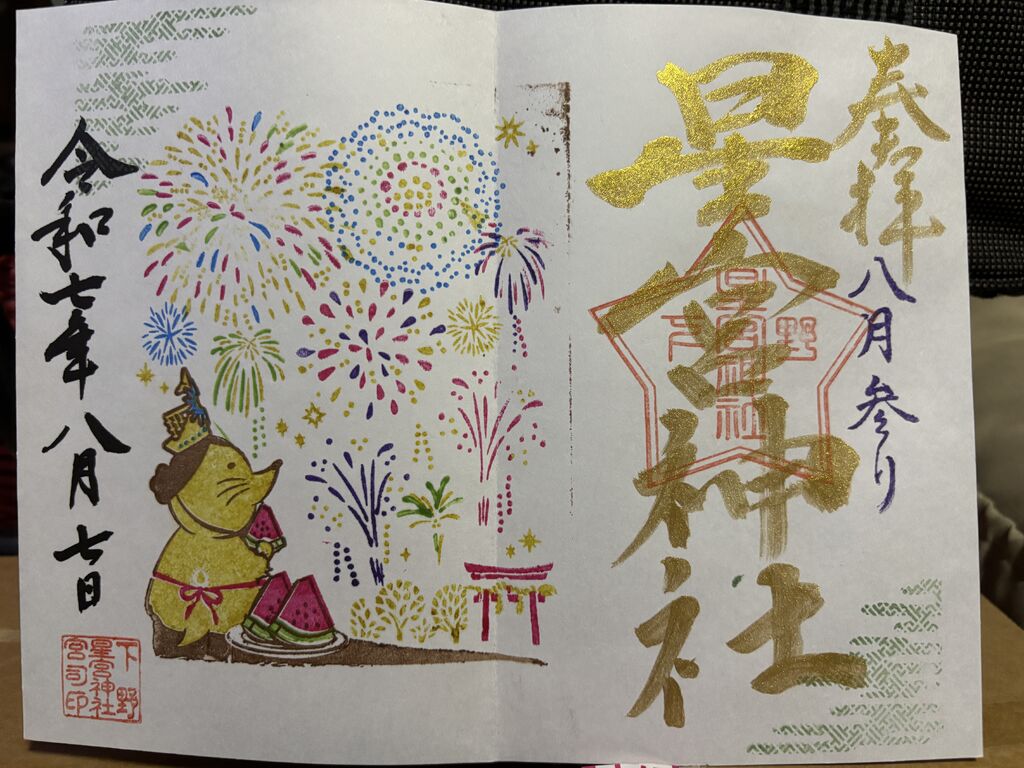 奉拝
八月参り
星宮神社
下野
星宮神社
令和七年八月七日
下野
星宮神社
宮司印